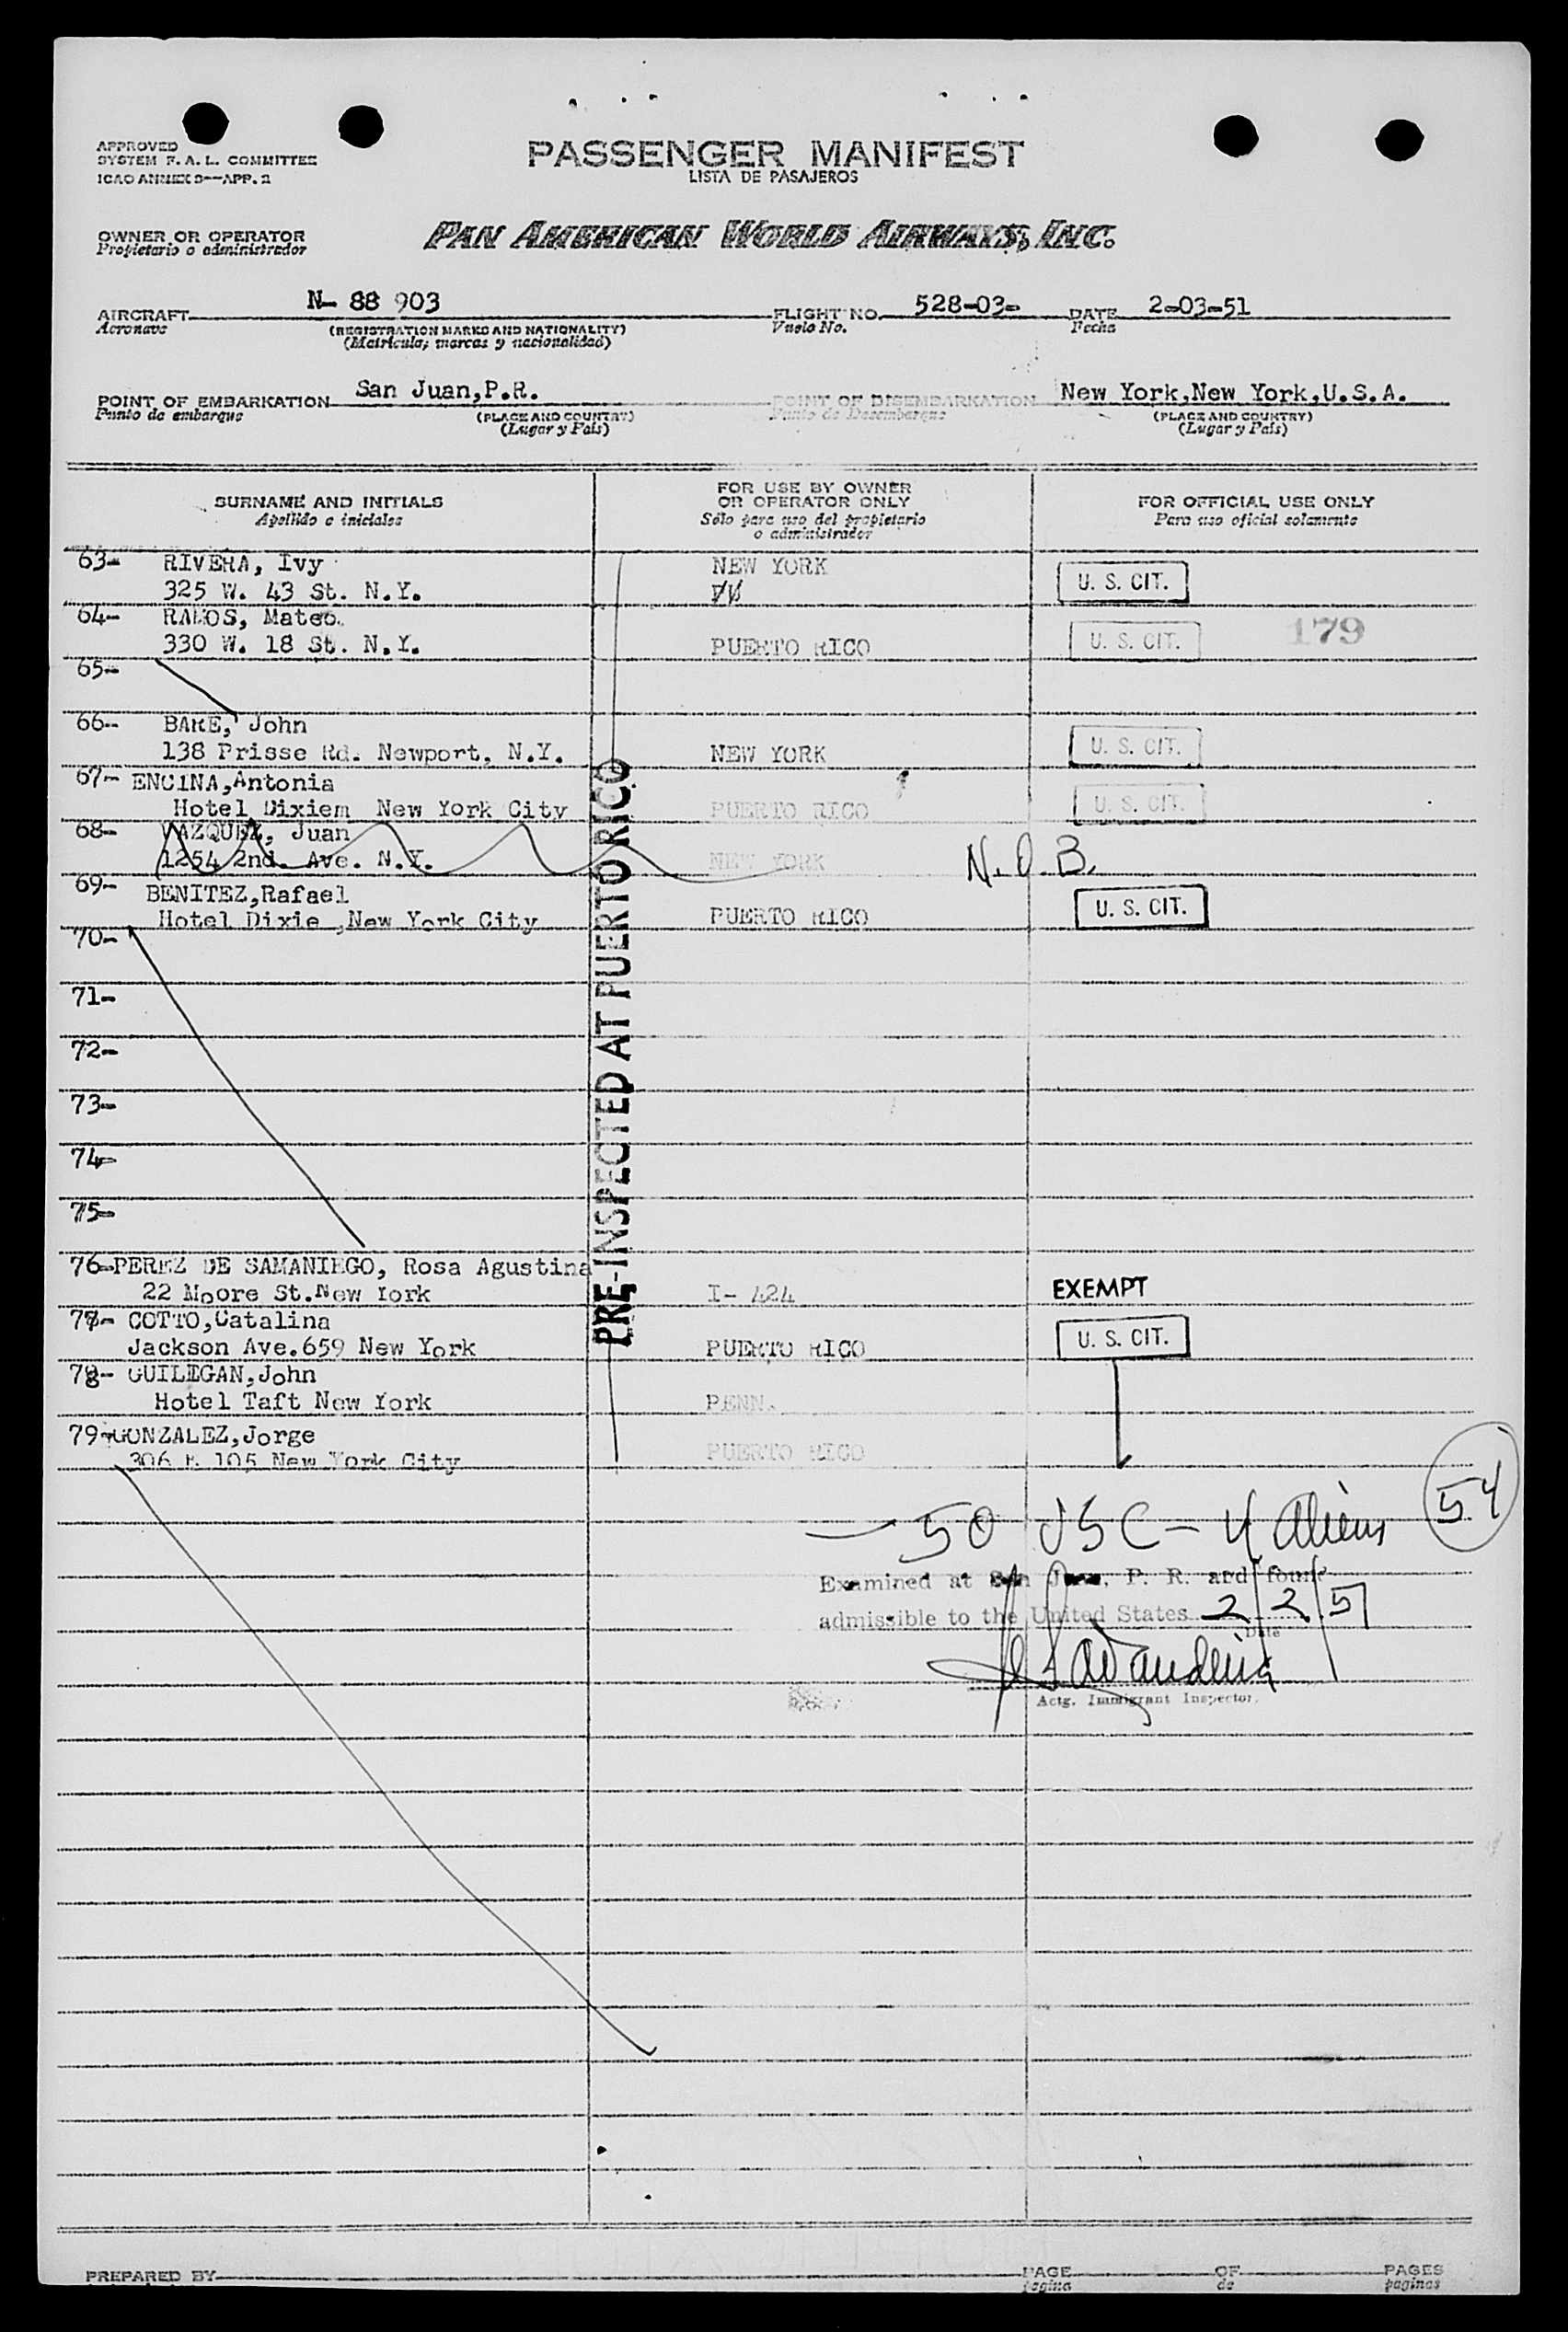 APPROVED
SYSTEM F. A. L. COMMITTEE
ICAO ANNEX 9—APP. 2
PASSENGER MANIFEST
LISTA DE PASAJEROS
OWNER OR OPERATOR
Propietario o administrador
PAN AMERICAN WORLD AIRWAYS, INC.
AIRCRAFT N- 88 903 FLIGHT NO. 528-03- DATE 2-03-51
Aeronave (REGISTRATION MARKS AND NATIONALITY) Vuelo No. Fecha
(Matrícula; marcas y nacionalidad)
POINT OF EMBARKATION San Juan,P.R. POINT OF DISEMBARKATION New York,New York,U.S.A.
Punto de embarque (PLACE AND COUNTRY) Punto de Desembarque (PLACE AND COUNTRY)
(Lugar y País) (Lugar y País)
SURNAME AND INITIALS FOR USE BY OWNER OR OPERATOR ONLY FOR OFFICIAL USE ONLY
Apellido e iniciales Sólo para uso del propietario o administrador Para uso oficial solamente
63- RIVERA, Ivy NEW YORK
325 W. 43 St. N.Y. U. S. CIT.
64- RAMOS, Mateo.
330 W. 18 St. N.Y. PUERTO RICO U. S. CIT. 179
65-
66- BAKE, John
138 Prisse Rd. Newport, N.Y. NEW YORK U. S. CIT.
67- ENCINA,Antonia
Hotel Dixiem New York City PUERTO RICO U. S. CIT.
68- VAZQUEZ, Juan
1254 2nd. Ave. N.Y. NEW YORK N.O.B.
69- BENITEZ,Rafael
Hotel Dixie ,New York City PUERTO RICO U. S. CIT.
70-
71-
72-
73-
74-
75-
PRE-INSPECTED AT PUERTO RICO
76-PEREZ DE SAMANIEGO, Rosa Agustina
22 Moore St.New York I- 424 EXEMPT
77- COTTO,Catalina
Jackson Ave.659 New York PUERTO RICO U. S. CIT.
78- GUILEGAN,John
Hotel Taft New York PENN.
79-GONZALEZ,Jorge
306 E 105 New York City PUERTO RICO
— 50 USC — 4 Aliens 54
Examined at San Juan, P. R. and found
admissible to the United States 2/2/51
Date
Actg. Immigrant Inspector.
PREPARED BY PAGE OF PAGES
página de páginas